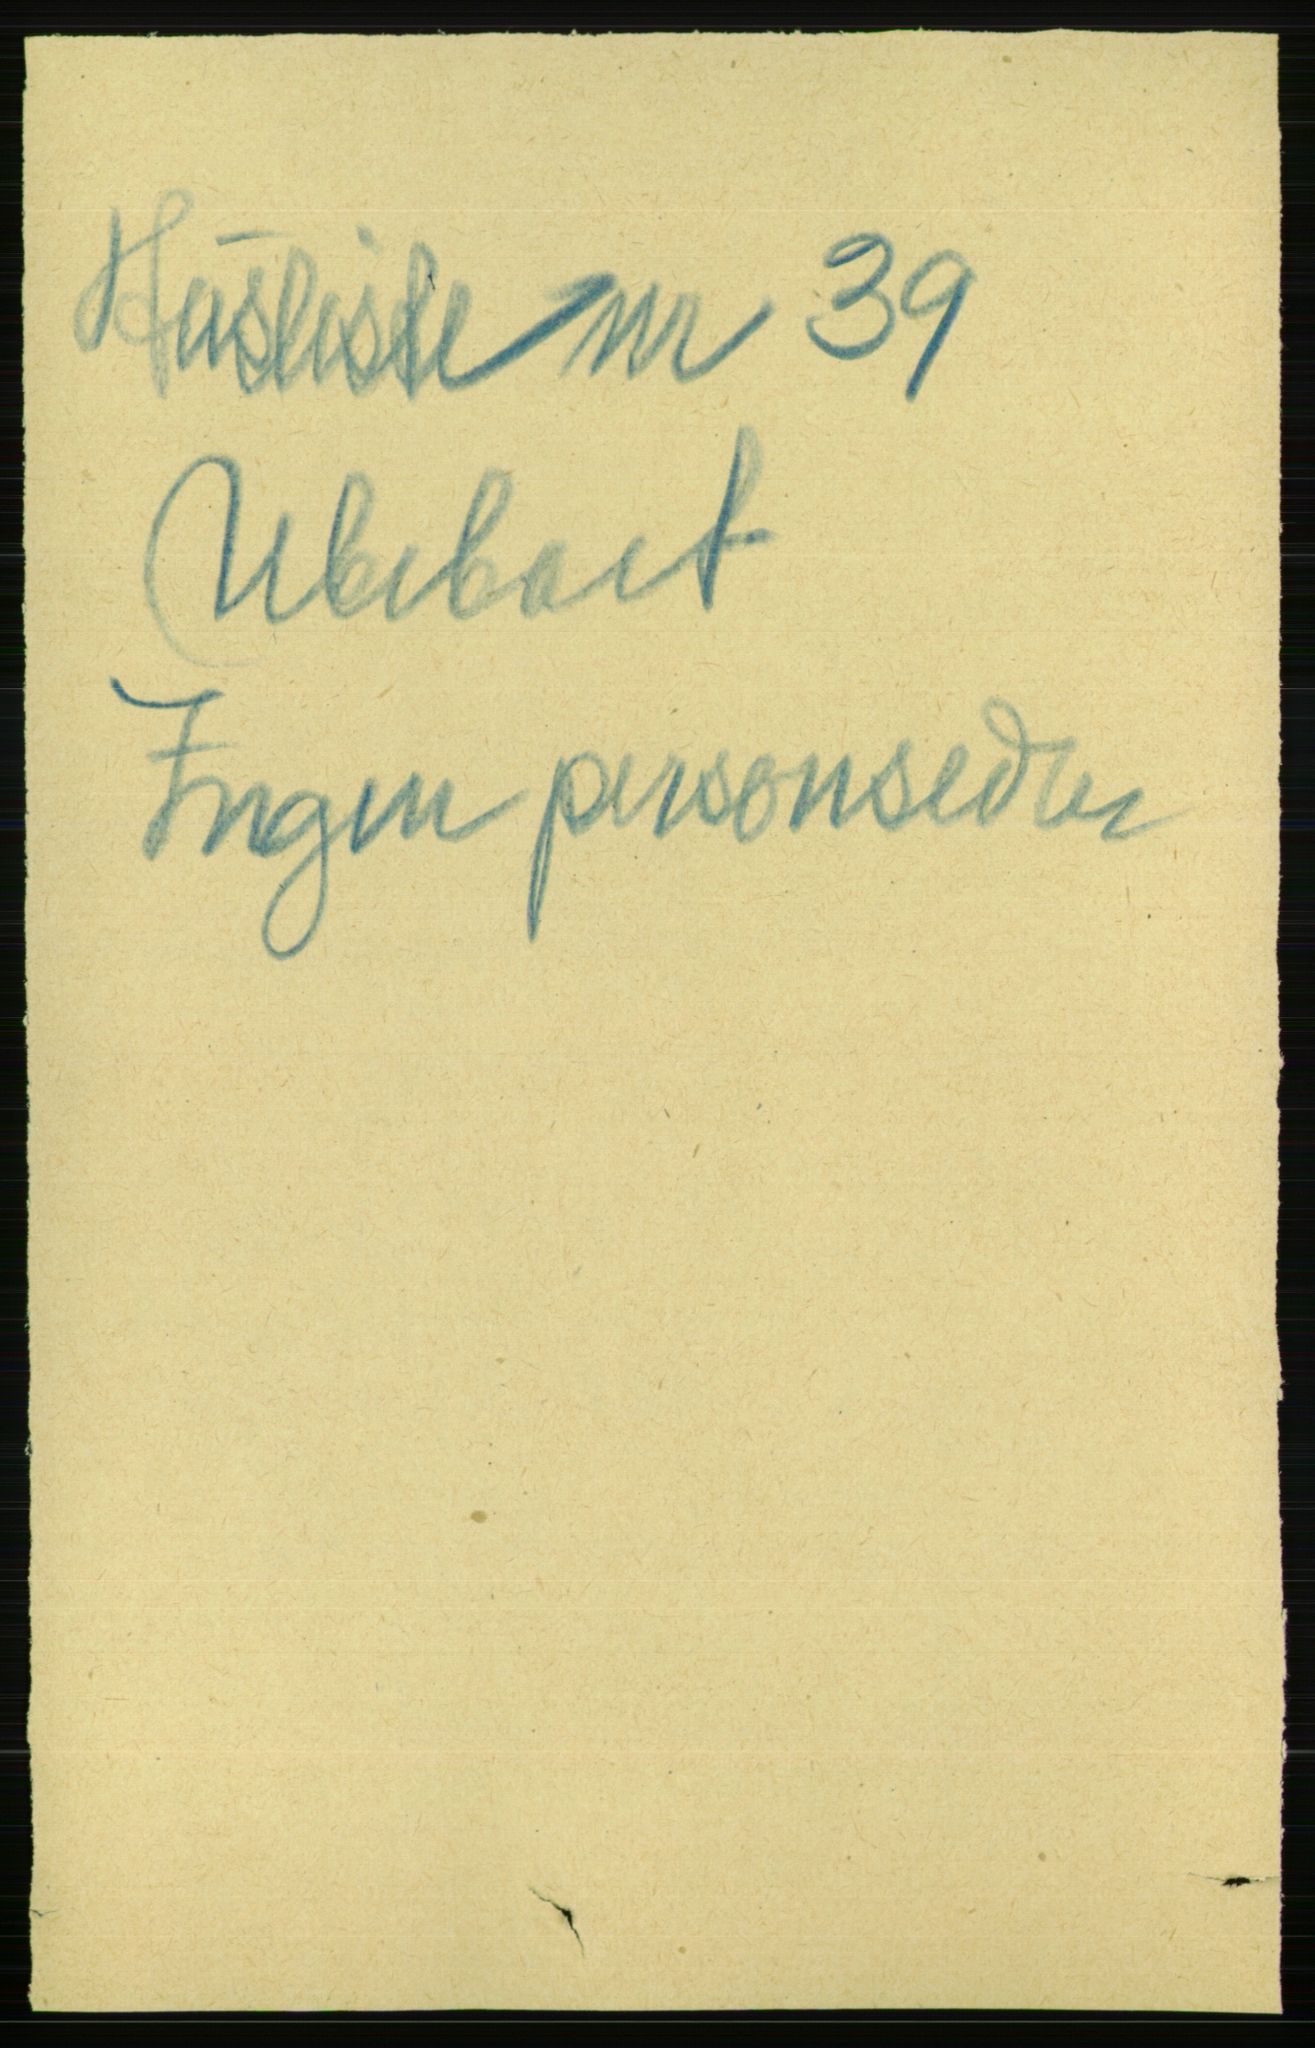 Husliste nr 39
Ubeboet
Ingen personsedler